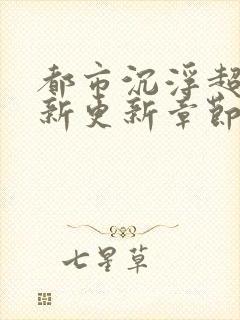 都市沉浮超
新更新章節
七星草